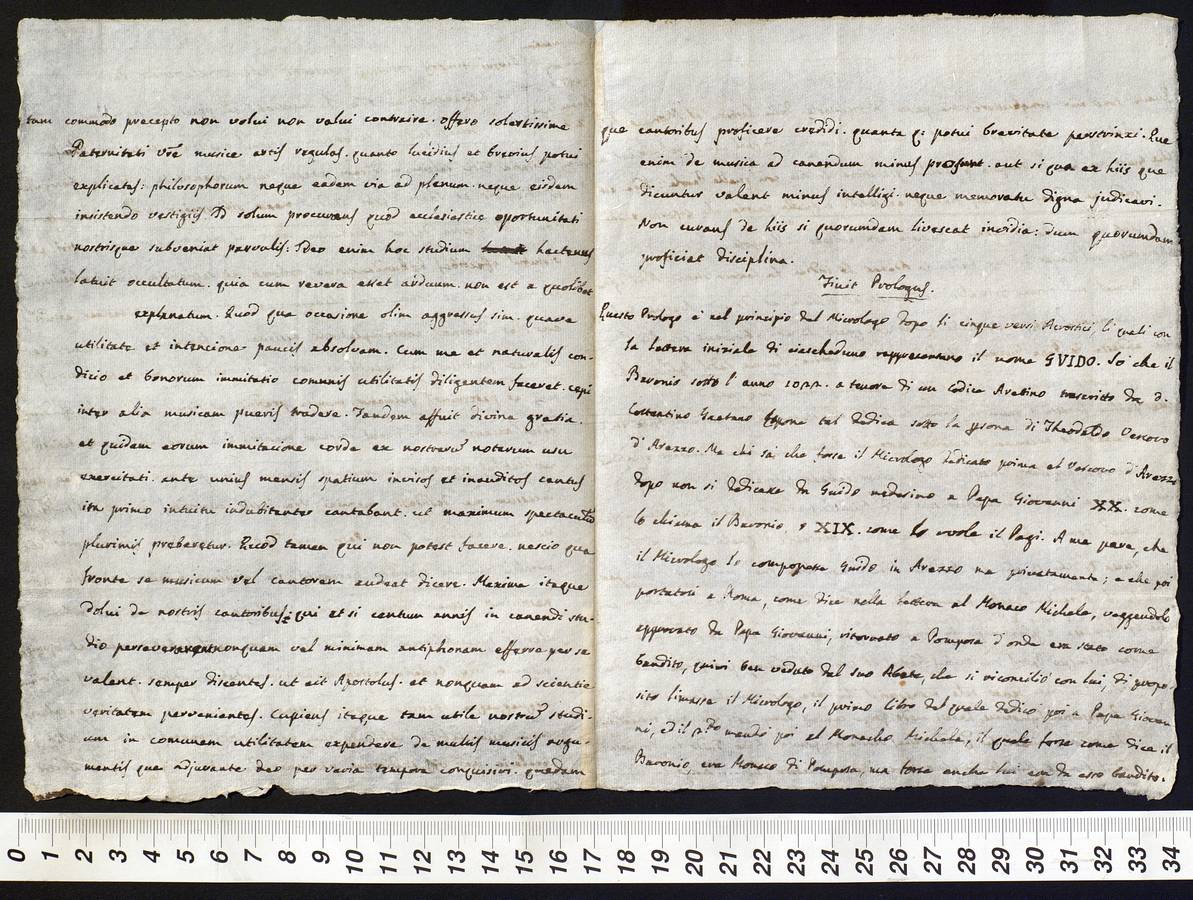 tum commodo precepto non volui non valui contraire. offero solertissime
Paternitati vre musice artis regulas. quanto lucidius et brevius potui
explicatas: philosophorum neque eadem via ad plenum. neque eisdem
insistendo vestigiis Id solum procurans quod ecclesiastice oportunitati
nostrisque subveniat parvulis: Ideo enim hoc studium hactenus
latuit occultatum. quia cum revera esset arduum. non est a quolibet
explanatum. Quod qua occasione olim aggressus sim. quave
utilitate et intencione paucis absolvam. Cum me et naturalis con-
dicio et bonorum immitatio communis utilitatis diligentem faceret. cepi
inter alia musicam pueris tradere. Tandem affuit divina gratia.
et quidam eorum immitacione corde ex nostraru notarum usu
exercitati. ante unius mensis spatium invisos et inauditos cantus
ita primo intuitu indubitanter cantabant. ut maximum spectaculu
plurimis preberetur. Quod tamen qui non potest facere. nescio qua
fronte se musicum vel cantorem audeat dicere. Maxime itaque
dolui de nostris cantoribus: qui et si centum annis in canendi stu-
dio perseverarent nonquam vel minimam antiphonam efferre per se
valent. semper discentes. ut ait Apostolus. et nonquam ad scientie
veritatem pervenientes. Cupiens itaque tam utile nostru studi-
um in comunem utilitatem expendere de multis musicis argu-
mentis que adjuvante deo per varia tempora conquisivi. quedam
que cantoribus proficere credidi. quanta qi potui brevitate perstrinxi. Que
enim de musica ad canendum minus prosunt. aut si qua ex hiis que
dicuntur valent minus intelligi. neque memoratu digna judicavi.
Non curans de hiis si quorumdam livescat invidia: dum quorumdam
proficiat disciplina.
Finit Prologus.
Questo Prologo è nel principio del Micrologo dopo li cinque versi Acrostici, li quali con
la lettera iniziale di ciascheduno rappresentano il nome GVIDO. So che il
Baronio sotto l'anno 1022. a tenore di un Codice Aretino trascritto da D.
Costantino Gaetano pone tal dedica sotto la psona di Theodaldo Vescovo
d'Arezzo. Ma chi sa che forse il Micrologo dedicato prima al Vescovo d'Arezzo
dopo non si dedicasse da Guido medesimo a Papa Giovanni XX. come
lo chiama il Baronio, o XIX. come lo vuole il Pagi. A me pare, che
il Micrologo lo componesse Guido in Arezzo ma privatamente; e che poi
portatosi a Roma, come dice nella lettera al Monaco Michele, vaggendolo
approvato da Papa Giovanni, ritornato a Pomposa d'onde era stato come
bandito, quivi ben veduto dal suo Abate, che si riconciliò con lui, di propo
sito limasse il Micrologo, il primo libro del quale dedicò poi a Papa Giovan
ni, ed il pmo mandò poi al Monacho Michele, il quale forse come dice il
Baronio era Monaco di Pomposa, ma forse anche lui era da esso bandito.